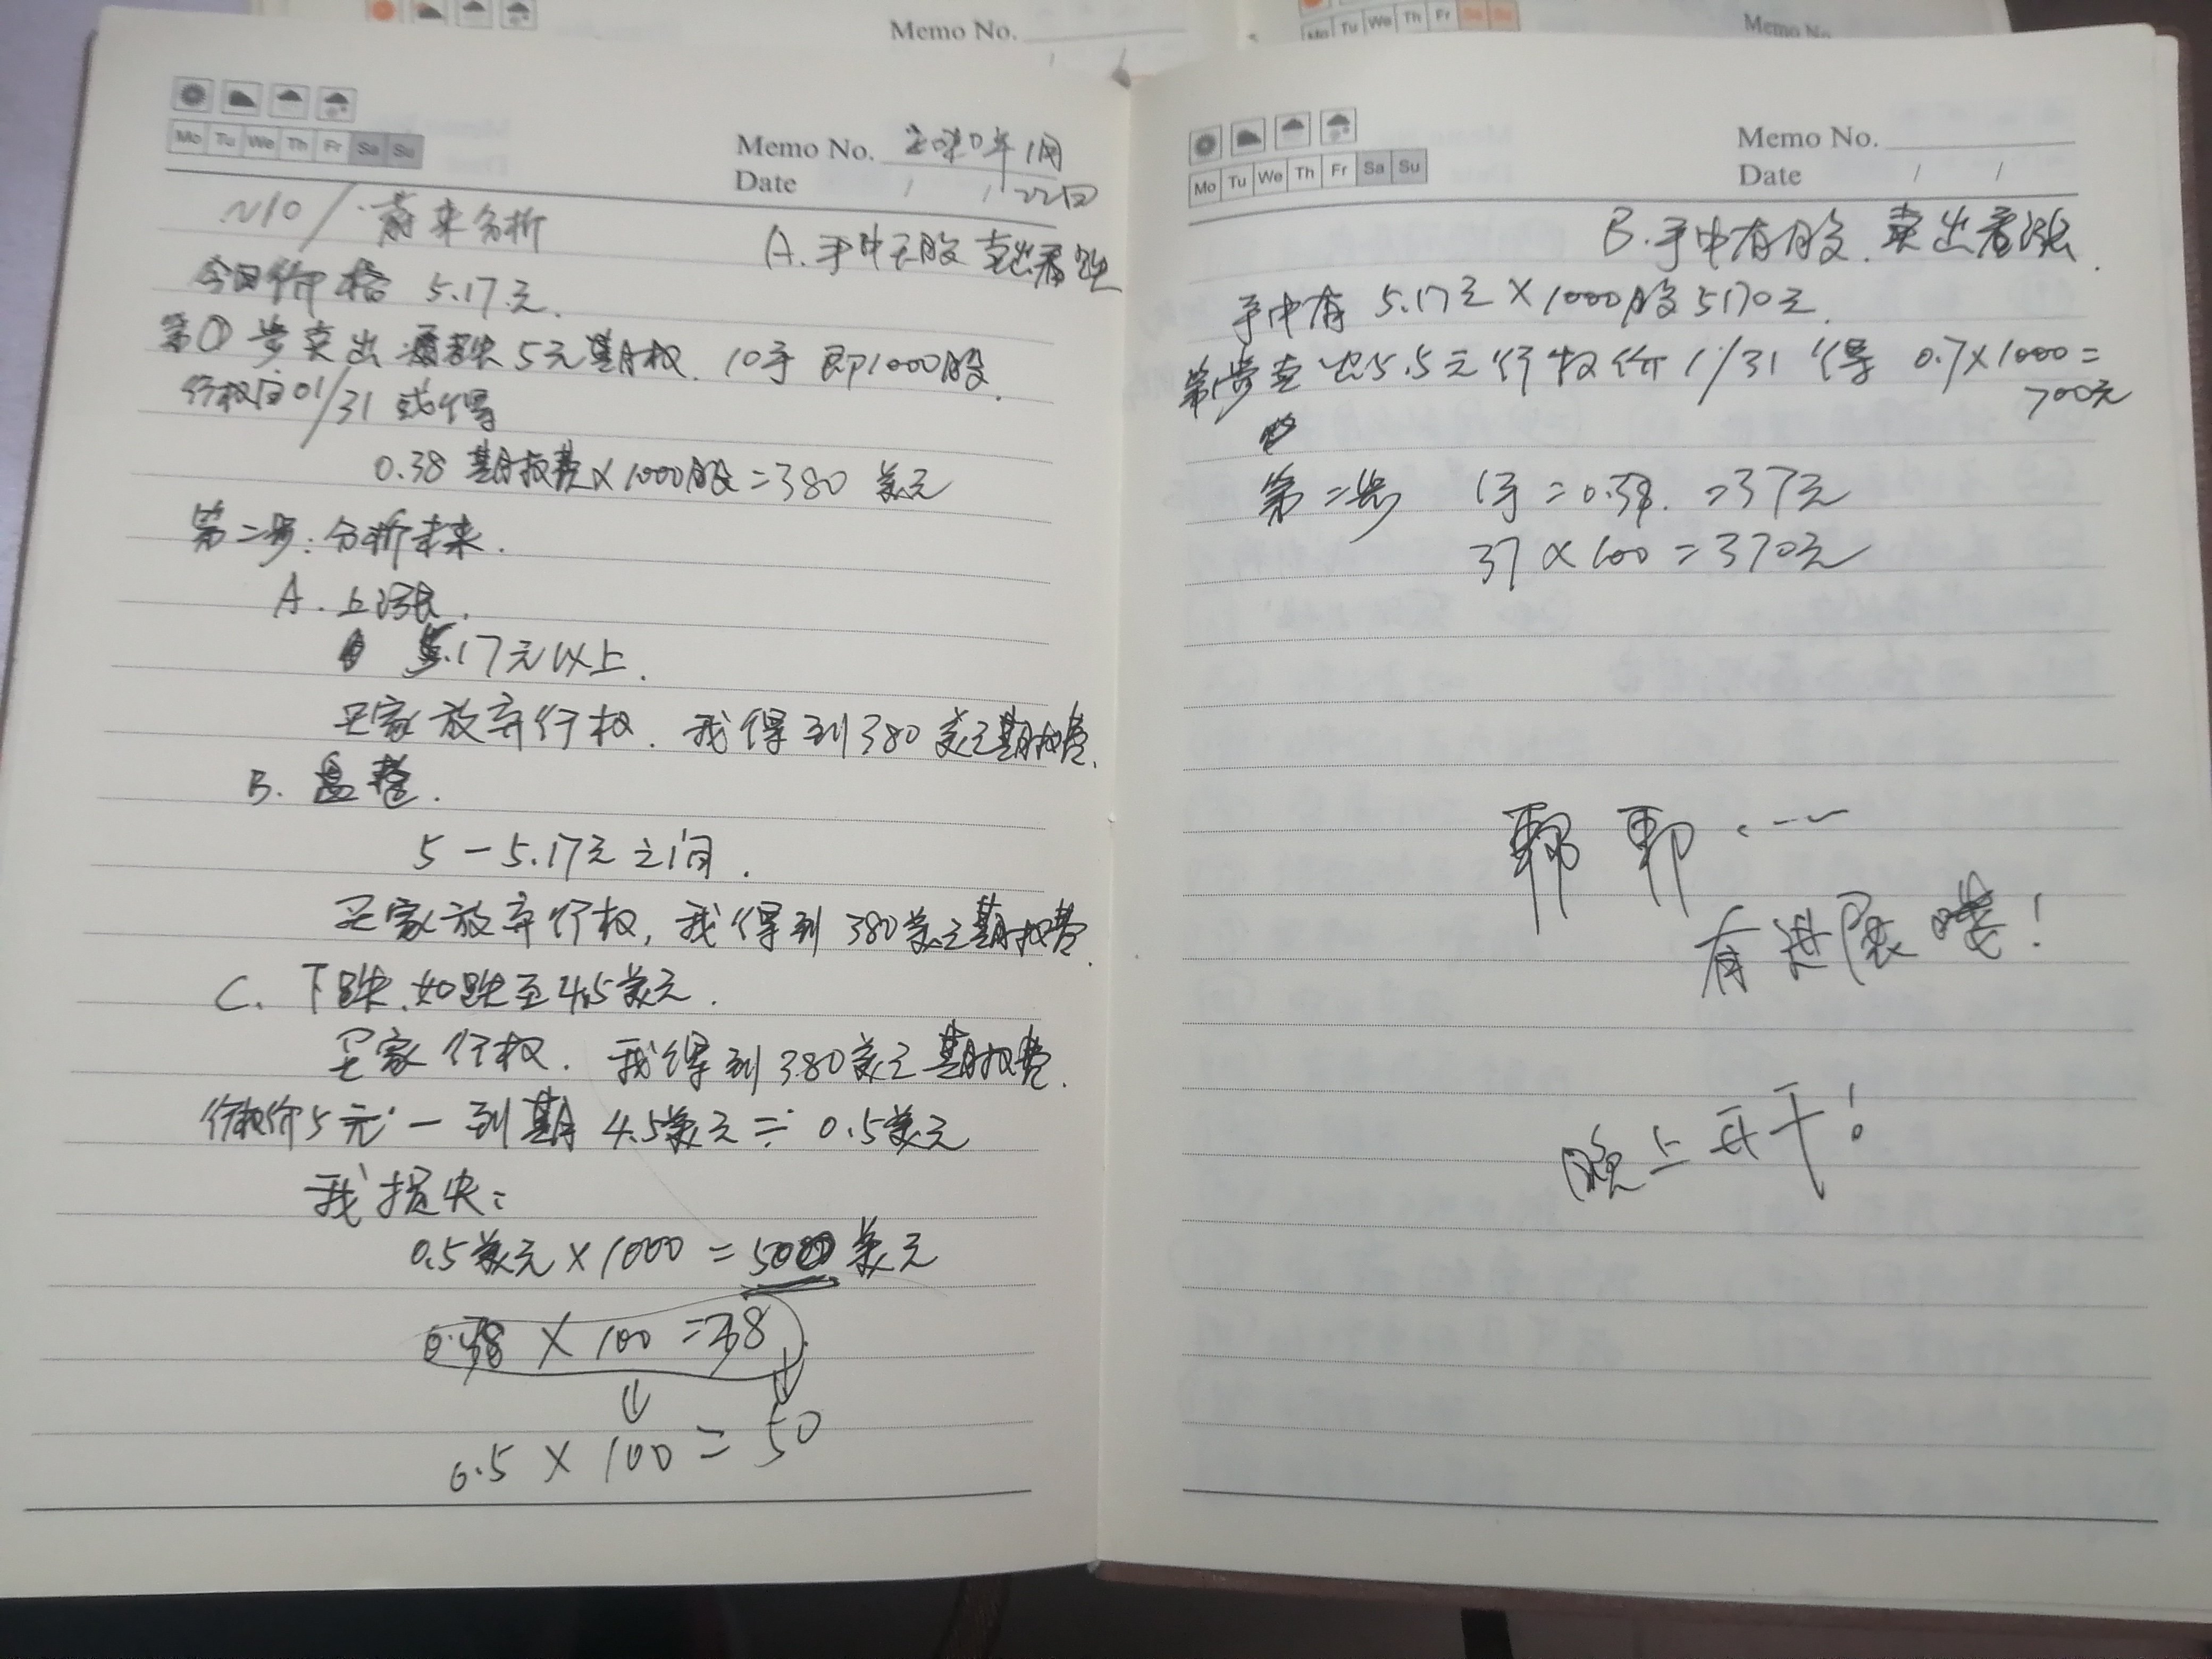 Memo No.
Mo Tu We Th Fr Sa Su
Memo No.
Mo Tu We Th Fr Sa Su
Memo No. 2020年1月
Date / / 22日
NIO/蔚来分析
A.手中无股 卖出看跌
今日价格 5.17元.
第①步卖出 看跌5元期权. 10手 即1000股.
行权日01/31 或得
0.38 期权费×1000股=380 美元
第二步:分析未来.
A.上涨.
5.17元以上.
买家放弃行权. 我得到380美元期权费.
B. 盘整.
5-5.17元之间.
买家放弃行权, 我得到380美元期权费.
C. 下跌.如跌至4.5美元.
买家行权. 我得到380美元期权费.
行权价5元-到期 4.5美元= 0.5美元
我损失:
0.5美元×1000=500美元
0.38×100=38
0.5×100=50
Mo Tu We Th Fr Sa Su
Memo No.
Date / /
B.手中有股.卖出看涨.
手中有 5.17元×1000股5170元.
第1步卖出5.5元行权价1/31得 0.7×1000=
700元
第二步 1手=0.38. =37元
37×100=370元
有进展喽!
晚上开干!